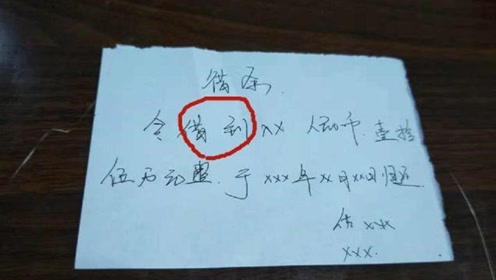 借条
今借到xx人民币.壹拾
伍万元整.于xxx年xx月xx日归还.
xxx
xxx.